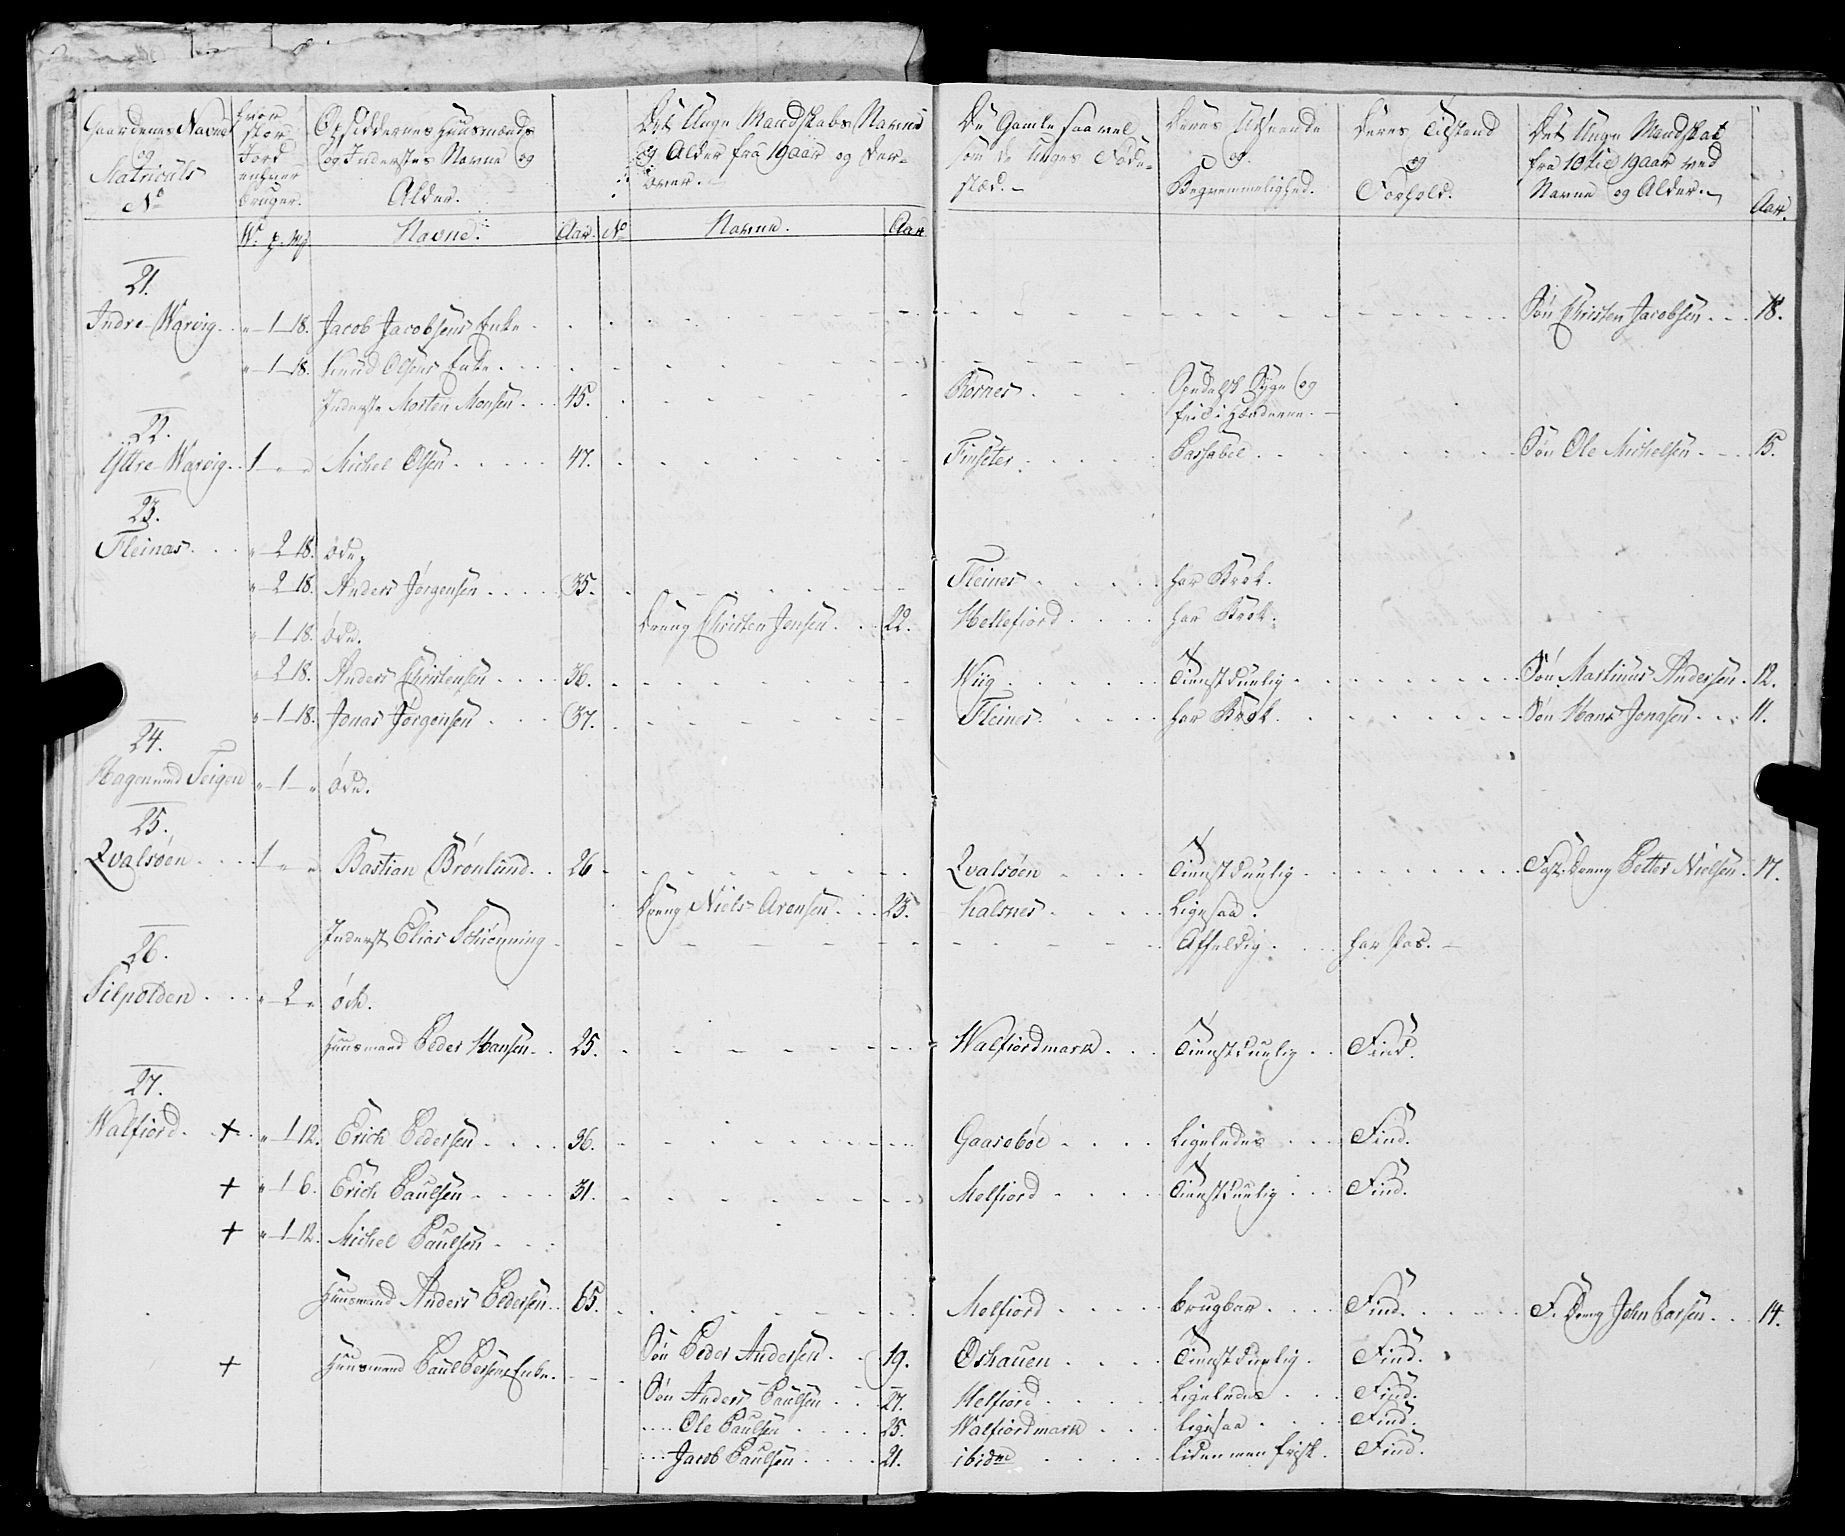 Gaardenes Navne og Matriculs No
Hvor stor Jord enhver bruger.
Opsiddernes Huusmænds og Inderstes Navne og Alder.
Det Unge Mandskabs Navne og Alder fra 19 aar og derover.
De Gamle saavel som de Unges Fødestæd.
Deres Udseende og Beqvemmelighed.
Deres Tilstand og Forhold.
Det Unge Mandskab fra 10 til 19 aar ved Navne og Alder. Aar.
W. Navne. Aar. No Navne. Aar
21.
Indre Warvig . . " 1 18. Jacob Jacobsens Enke . . . Søn Christen Jacobsen . . . 18.
" 1 18. Knud Olsens Enke . . .
Inderste Morten Monsen . . 45. Bornes . . . Syge og feil i Hænderne.
22.
Yttre Warvig . . 1 " " Michel Olsen . . . 47. Finseter . . . Passabel . . . Søn Ole Michelsen . . . 15.
23.
Fleinas . . . " 2 18. øde.
" 2 18. Anders Jørgensen . . . 35. Fleines . . . har Brok.
" 1 18. øde. Dreng Christen Jensen . . 22. Hellefiord . . . har Brok.
" 2 18. Anders Christensen . . . 36. Wiig . . . Tienstdunlig . . . Søn Martinus Andersen . 12.
" 1 18. Jonas Jørgensen . . . 37. Fleines . . . har Brok . . . Søn Hans Jonasen . . . 11.
24.
Hagen Teigen " 1 " øde.
25.
Qvalsøen . . . 1 " " Bastian Brønlund . . 26 Qvalsøen . . . Tienstduelig . . . Fost. Dreng Petter Nielsen . 17.
Dreng Niels Arensen . . . 23. Halsnes . . . Ligesaa.
Inderst Elias Schiønning . . . Affeldig . . . har Pas.
26.
Silpolden . . . " 2 " øde.
Huusmand Peder Hansen . . 25. Walfiordmark . . . Tienstduelig . . Find.
27.
Walfiord . . + . " 1 12. Erich Pedersen . . . 36. Gaasebøe . . . Ligeledes . . . Find.
+ " 1 6. Erich Paulsen . . . 31. Melfiord . . . Tienstduelig . . . Find.
+ " 1 12. Michel Paulsen . . .
Huusmand Anders Pedersen . . 65. Melfiord . . . brugbar . . . Find . . . F. Dreng John Larsen . . . 14.
Søn Peder Andersen . . 19. Oshauen . . . Tienstduelig . Find.
+ Huusmand Paul Persens Enke . . .
Søn Anders Paulsen . . 27. Melfiord . . . Ligeledes . . . Find.
. . . Ole Paulsen . . . 25. Walfiordmark . . . Ligesaa . . . Find.
. . . Jacob Paulsen . . . 21. ibidm . . . Liden men frisk . Find.